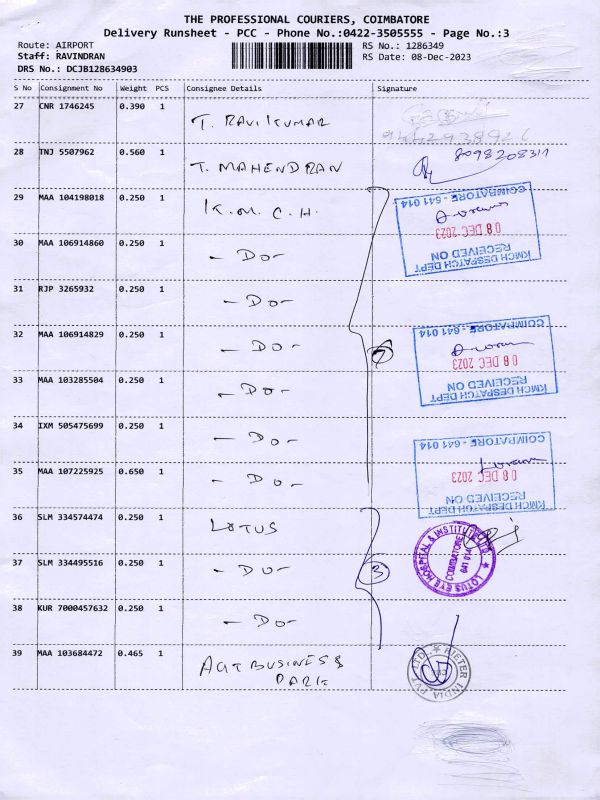 THE PROFESSIONAL COURIERS, COIMBATORE
Delivery Runsheet - PCC - Phone No.:0422-3505555 - Page No.:3
Route: AIRPORT
RS No.: 1286349
Staff: RAVINDRAN
RS Date: 08-Dec-2023
DRS No.: DCJB128634903
S No Consignment No Weight PCS Consignee Details Signature
27 CNR 1746245 0.390 1 T. RAVIKUMAR
28 TNJ 5507962 0.560 1 T. MAHENDRAN
29 MAA 104198018 0.250 1 K.M.C.H.
KMCH DESPATCH DEPT
RECEIVED ON
08 DEC 2023
COIMBATORE - 641 014
30 MAA 106914860 0.250 1 - DO -
31 RJP 3265932 0.250 1 - DO -
32 MAA 106914829 0.250 1 - DO -
7
KMCH DESPATCH DEPT
RECEIVED ON
08 DEC 2023
COIMBATORE - 641 014
33 MAA 103285504 0.250 1 - DO -
34 IXM 505475699 0.250 1 - DO -
35 MAA 107225925 0.650 1 - DO -
KMCH DESPATCH DEPT
RECEIVED ON
08 DEC 2023
COIMBATORE - 641 014
36 SLM 334574474 0.250 1 LOTUS
37 SLM 334495516 0.250 1 - DO -
3
LOTUS EYE HOSPITAL & INSTITUTE LTD
COIMBATORE
641 014
38 KUR 7000457632 0.250 1 - DO -
39 MAA 103684472 0.465 1 AGT BUSINESS
PARK
RIETER INDIA PVT LTD